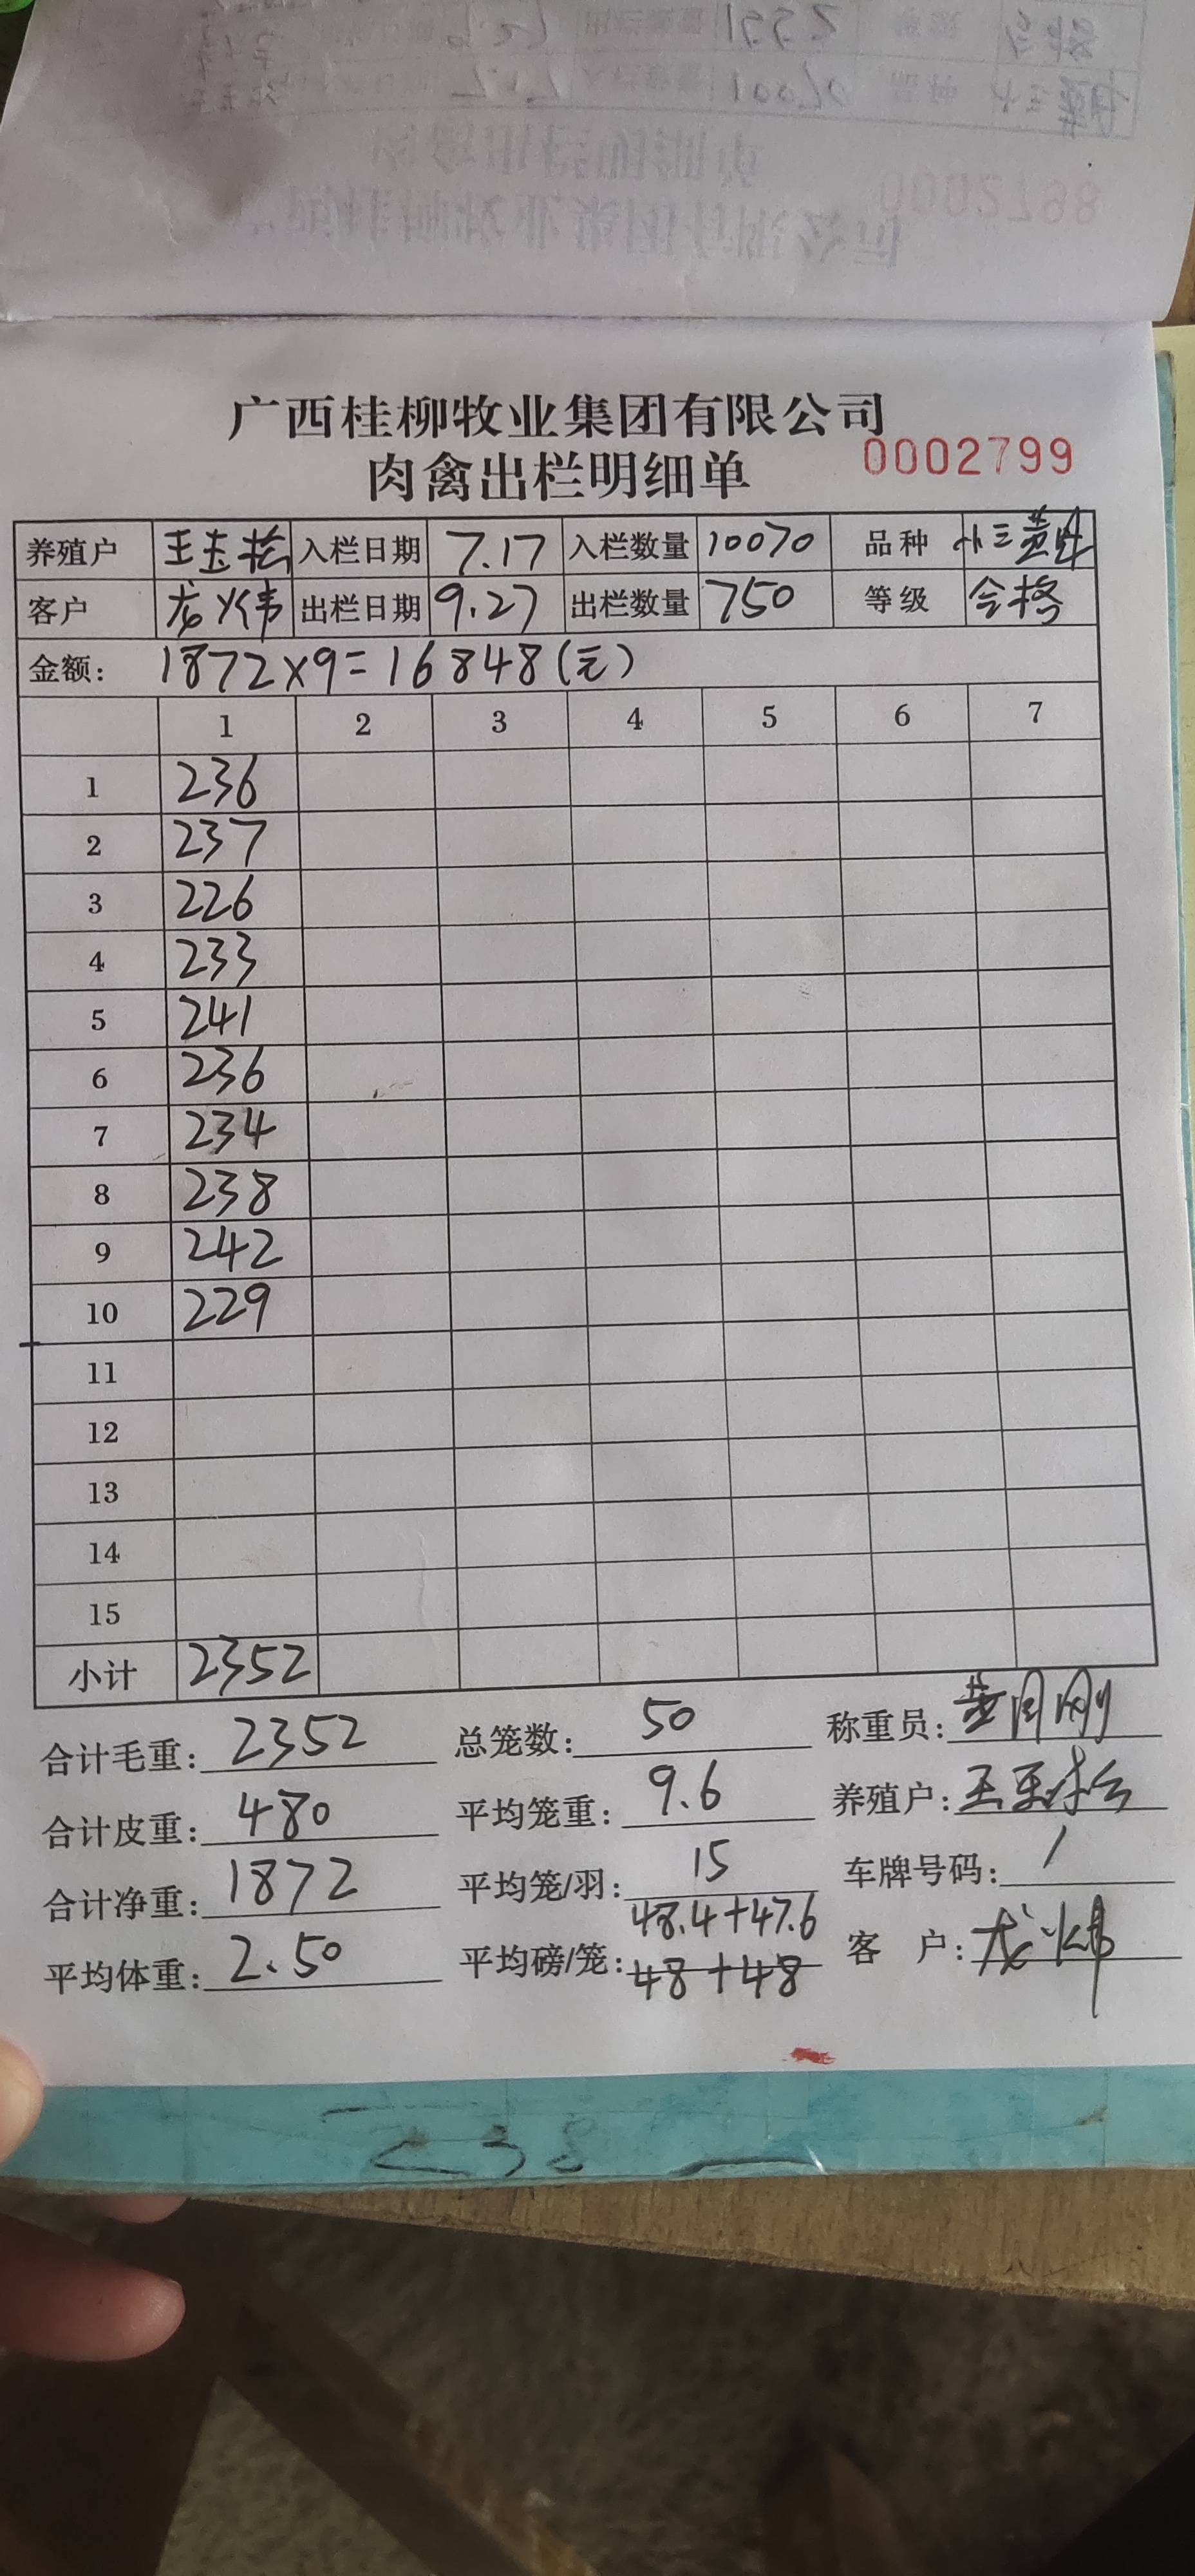 0002798
广西桂柳牧业集团有限公司
肉禽出栏明细单 0002799
养殖户 王玉松 入栏日期 7.17 入栏数量 10070 品种 小三黄
客户 龙炜 出栏日期 9.27 出栏数量 750 等级 合格
金额: 1872×9=16848(元)
1 2 3 4 5 6 7
1 236
2 237
3 226
4 233
5 241
6 236
7 234
8 238
9 242
10 229
11
12
13
14
15
小计 2352
合计毛重: 2352 总笼数: 50 称重员: 黄月刚
合计皮重: 480 平均笼重: 9.6 养殖户: 王玉松
合计净重: 1872 平均笼/羽: 15 车牌号码: /
48.4+47.6
平均体重: 2.50 平均磅/笼: 48+48 客 户: 龙炜